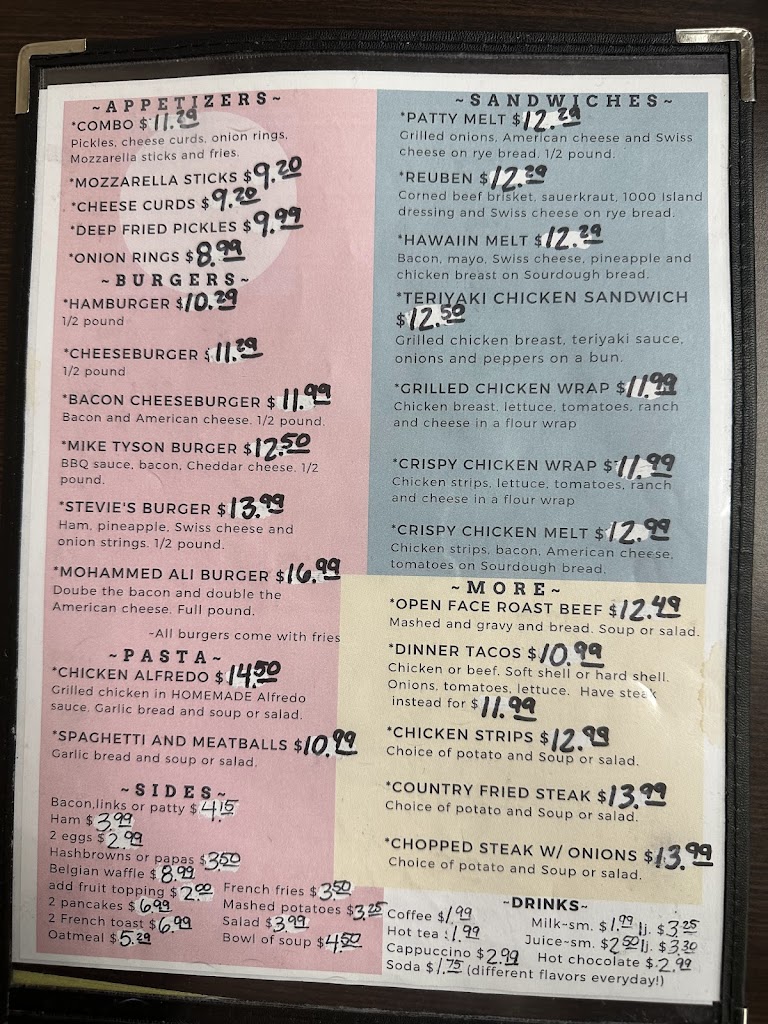 ~APPETIZERS~
*COMBO $11.29
Pickles, cheese curds, onion rings,
Mozzarella sticks and fries.
*MOZZARELLA STICKS $9.20
*CHEESE CURDS $9.20
*DEEP FRIED PICKLES $9.99
*ONION RINGS $8.99
~BURGERS~
*HAMBURGER $10.29
1/2 pound
*CHEESEBURGER $11.29
1/2 pound
*BACON CHEESEBURGER $11.99
Bacon and American cheese. 1/2 pound.
*MIKE TYSON BURGER $12.50
BBQ sauce, bacon, Cheddar cheese. 1/2
pound.
*STEVIE'S BURGER $13.99
Ham, pineapple, Swiss cheese and
onion strings. 1/2 pound.
*MOHAMMED ALI BURGER $16.99
Doube the bacon and double the
American cheese. Full pound.
~All burgers come with fries
~PASTA~
*CHICKEN ALFREDO $14.50
Grilled chicken in HOMEMADE Alfredo
sauce. Garlic bread and soup or salad.
*SPAGHETTI AND MEATBALLS $10.99
Garlic bread and soup or salad.
~SIDES~
Bacon,links or patty $4.15
Ham $3.99
2 eggs $2.99
Hashbrowns or papas $3.50
Belgian waffle $8.99
add fruit topping $2.00
2 pancakes $6.99
2 French toast $6.99
Oatmeal $5.29
French fries $3.50
Mashed potatoes $3.25
Salad $3.99
Bowl of soup $4.50
~SANDWICHES~
*PATTY MELT $12.29
Grilled onions, American cheese and Swiss
cheese on rye bread. 1/2 pound.
*REUBEN $12.29
Corned beef brisket, sauerkraut, 1000 Island
dressing and Swiss cheese on rye bread.
*HAWAIIN MELT $12.29
Bacon, mayo, Swiss cheese, pineapple and
chicken breast on Sourdough bread.
*TERIYAKI CHICKEN SANDWICH
$12.50
Grilled chicken breast, teriyaki sauce,
onions and peppers on a bun.
*GRILLED CHICKEN WRAP $11.99
Chicken breast, lettuce, tomatoes, ranch
and cheese in a flour wrap
*CRISPY CHICKEN WRAP $11.99
Chicken strips, lettuce, tomatoes, ranch
and cheese in a flour wrap
*CRISPY CHICKEN MELT $12.99
Chicken strips, bacon, American cheese,
tomatoes on Sourdough bread.
~MORE~
*OPEN FACE ROAST BEEF $12.49
Mashed and gravy and bread. Soup or salad.
*DINNER TACOS $10.99
Chicken or beef. Soft shell or hard shell.
Onions, tomatoes, lettuce. Have steak
instead for $11.99
*CHICKEN STRIPS $12.99
Choice of potato and Soup or salad.
*COUNTRY FRIED STEAK $13.99
Choice of potato and Soup or salad.
*CHOPPED STEAK W/ ONIONS $13.99
Choice of potato and Soup or salad.
~DRINKS~
Coffee $1.99
Milk~sm. $1.99 lj. $3.25
Hot tea $1.99
Juice~sm. $2.50 lj. $3.30
Cappuccino $2.99
Hot chocolate $2.99
Soda $1.75 (different flavors everyday!)